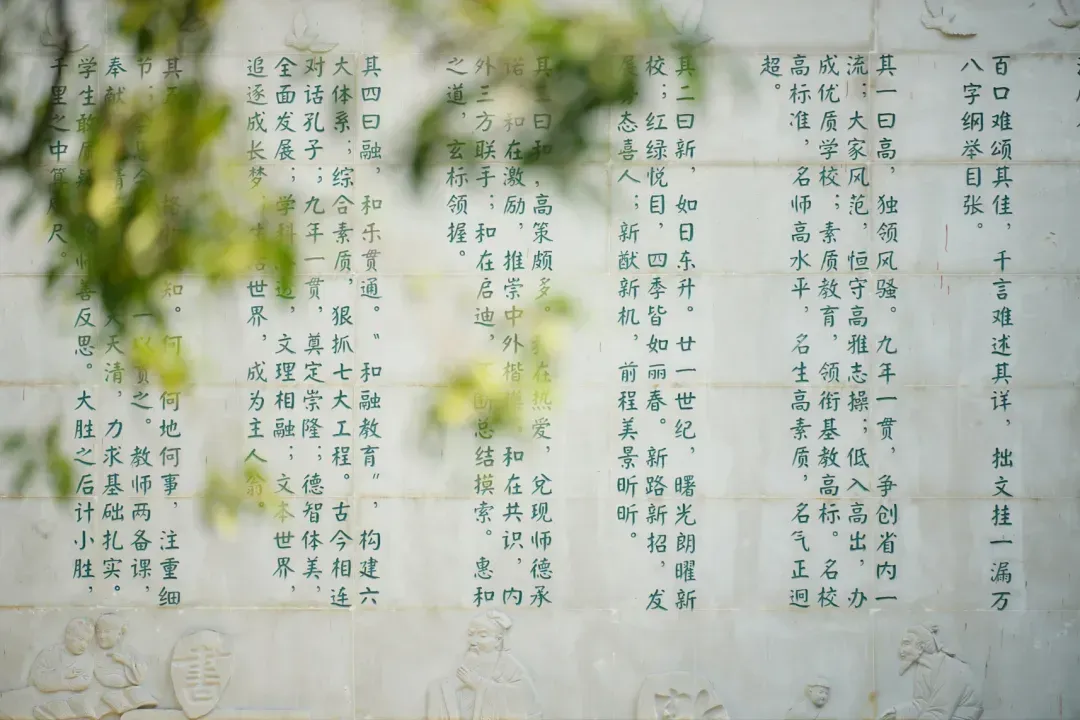 百口难颂其佳，千言难述其详，拙文挂一漏万
八字纲举目张。
其一曰高，独领风骚。九年一贯，争创省内一
流；大家风范，恒守高雅志操；低入高出，办
成优质学校；素质教育，领衔基教高标。名校
高标准，名师高水平，名生高素质，名气正迥
超。
其二曰新，如日东升。廿一世纪，曙光朗曜新
校；红绿悦目，四季皆如丽春。新路新招，发
展态喜人；新猷新机，前程美景昕昕。
其曰和，高策颇多。在热爱，兑现师德承
诺和在激励，推崇中外楷模；和在共识，内
外三方联手；和在启迪，断总结摸索。惠和
之道，玄标领握。
其四曰融，和乐贯通。“和融教育”，构建六
大体系；综合素质，狠抓七大工程。古今相连
对话孔子；九年一贯，奠定崇隆；德智体美，
全面发展；学科，文理相融；文本世界，
追逐成长梦；世界，成为主人翁。
其知。何何地何事，注重细
节；一以贯之。教师两备课，
奉献天清，力求基础扎实。
学生敢质师善反思。大胜之后计小胜，
千里之中算尺。
書